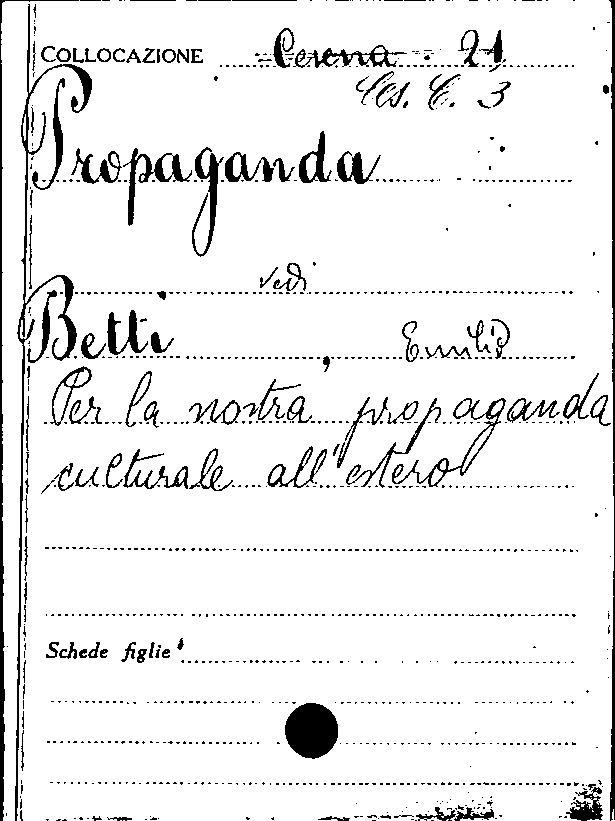 COLLOCAZIONE Cesena . 21
Cs. C. 3
Propaganda
vedi
Betti , Emilio
Per la nostra propaganda
culturale all'estero
Schede figlie